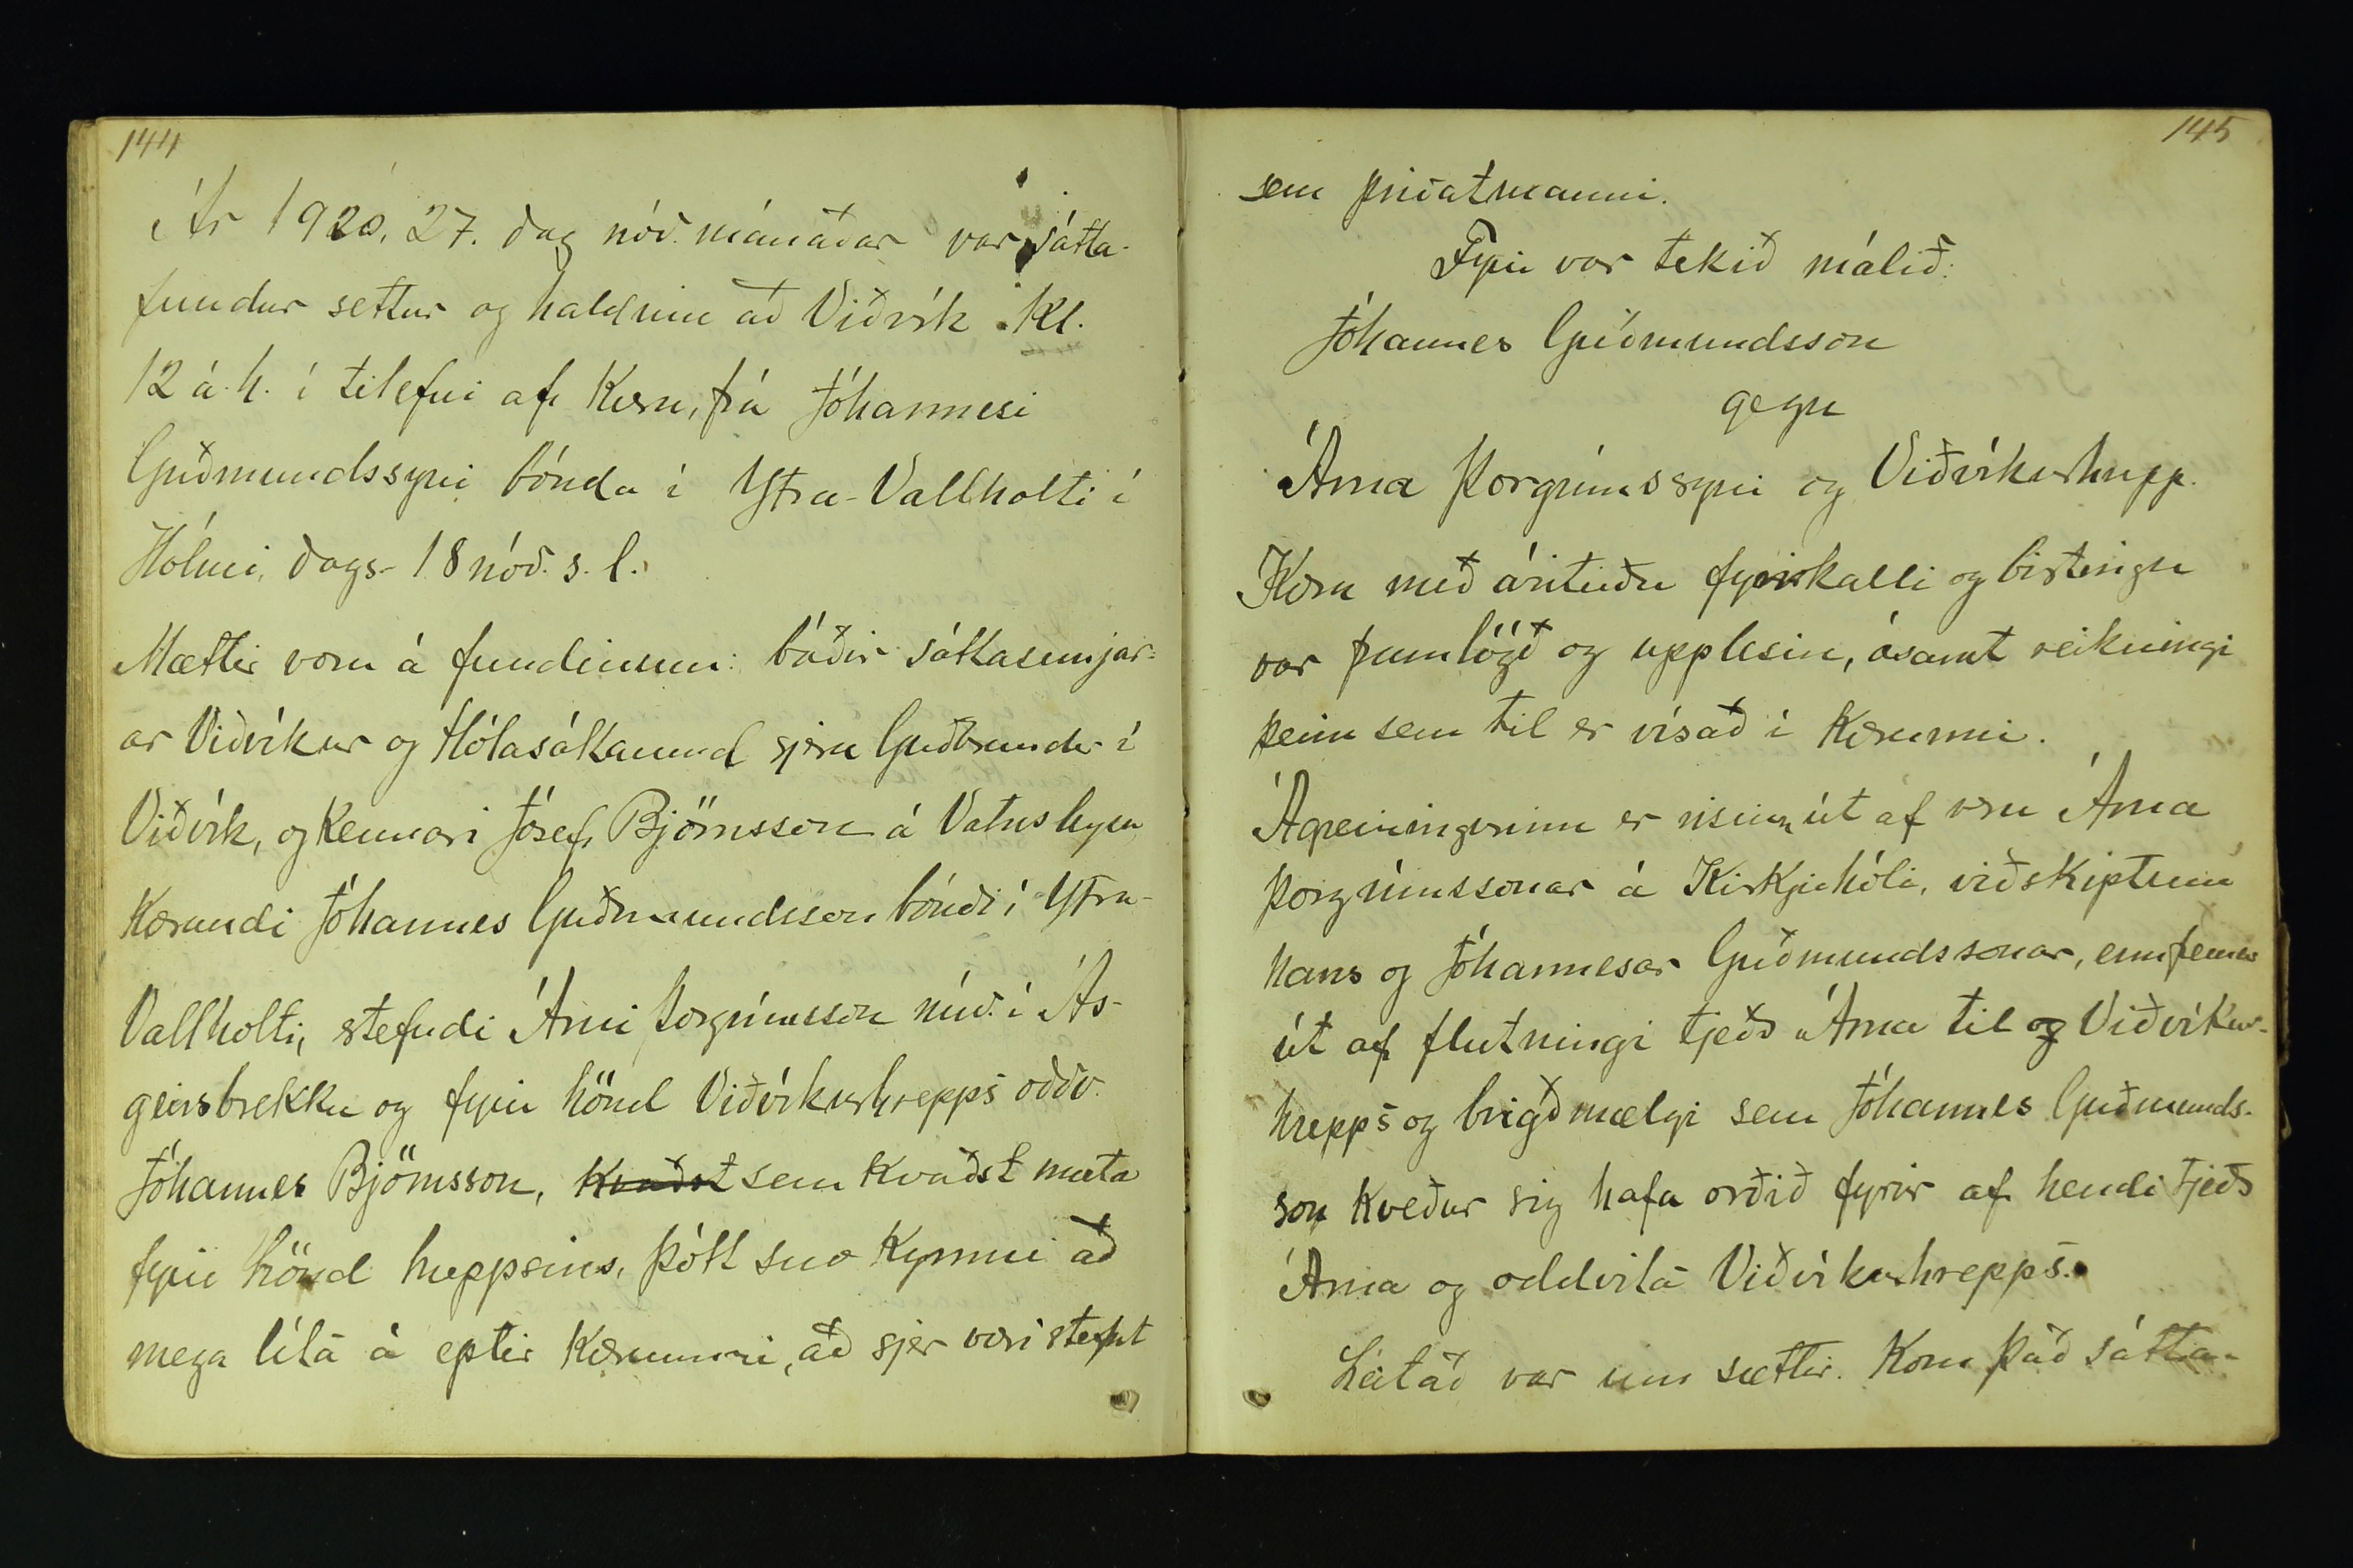 144
Ár 1920, 27. dag nóv. mánaðar var sátta-
fundur settur og haldinn að Viðvík kl.
12 á h. í tilefni af kæru, frá Jóhannesi
Guðmundssyni bónda í Ytra-Vallholti í
Hólmi, dags. 18 nóv. s. l.
Mættir voru á fundinum: báðir sáttasemjar-
ar Viðvíkur og Hólasáttaumd sjera Guðbrandur í
Viðvík, og kennari Jósef Björnsson á Vatnsleysu
Kærandi Jóhannes Guðmundsson bóndi í Ytra-
Vallholti, stefndi Árni Þorgrímsson núv. í Ás-
geirsbrekku og fyrir hönd Viðvíkurhrepps oddv.
Jóhannes Björnsson, kvaðst sem kvaðst mæta
fyrir hönd hreppsins, þótt svo kynni að
mega líta á eptir kærunni, að sjer væri stefnt
145
sem privatmanni.
Fyrir var tekið málið:
Jóhannes Guðmundsson
gegn
Árna Þorgrímssyni og Viðvíkurhrepp.
Kæra með árituðu fyrirkalli og birtingu
var framlögð og upplesin, ásamt reikningi
þeim sem til er vísað í kærunni.
Ágreiningurinn er risinn út af veru Árna
Þorgrímssonar á Kirkjuhóli, viðskiptum
hans og Jóhannesar Guðmundssonar, ennfremur
út af flutningi tjeðs Árna til og Viðvíkur-
hrepps og brigðmælgi sem Jóhannes Guðmunds-
son kveður sig hafa orðið fyrir af hendi tjeðs
Árna og oddvita Viðvíkurhrepps.
Leitað var um sættir. Kom það sátta-